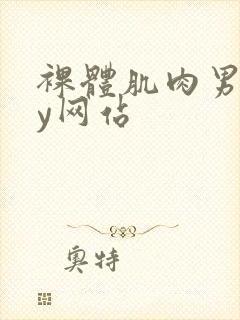 裸體肌肉男
y网佔
奥特